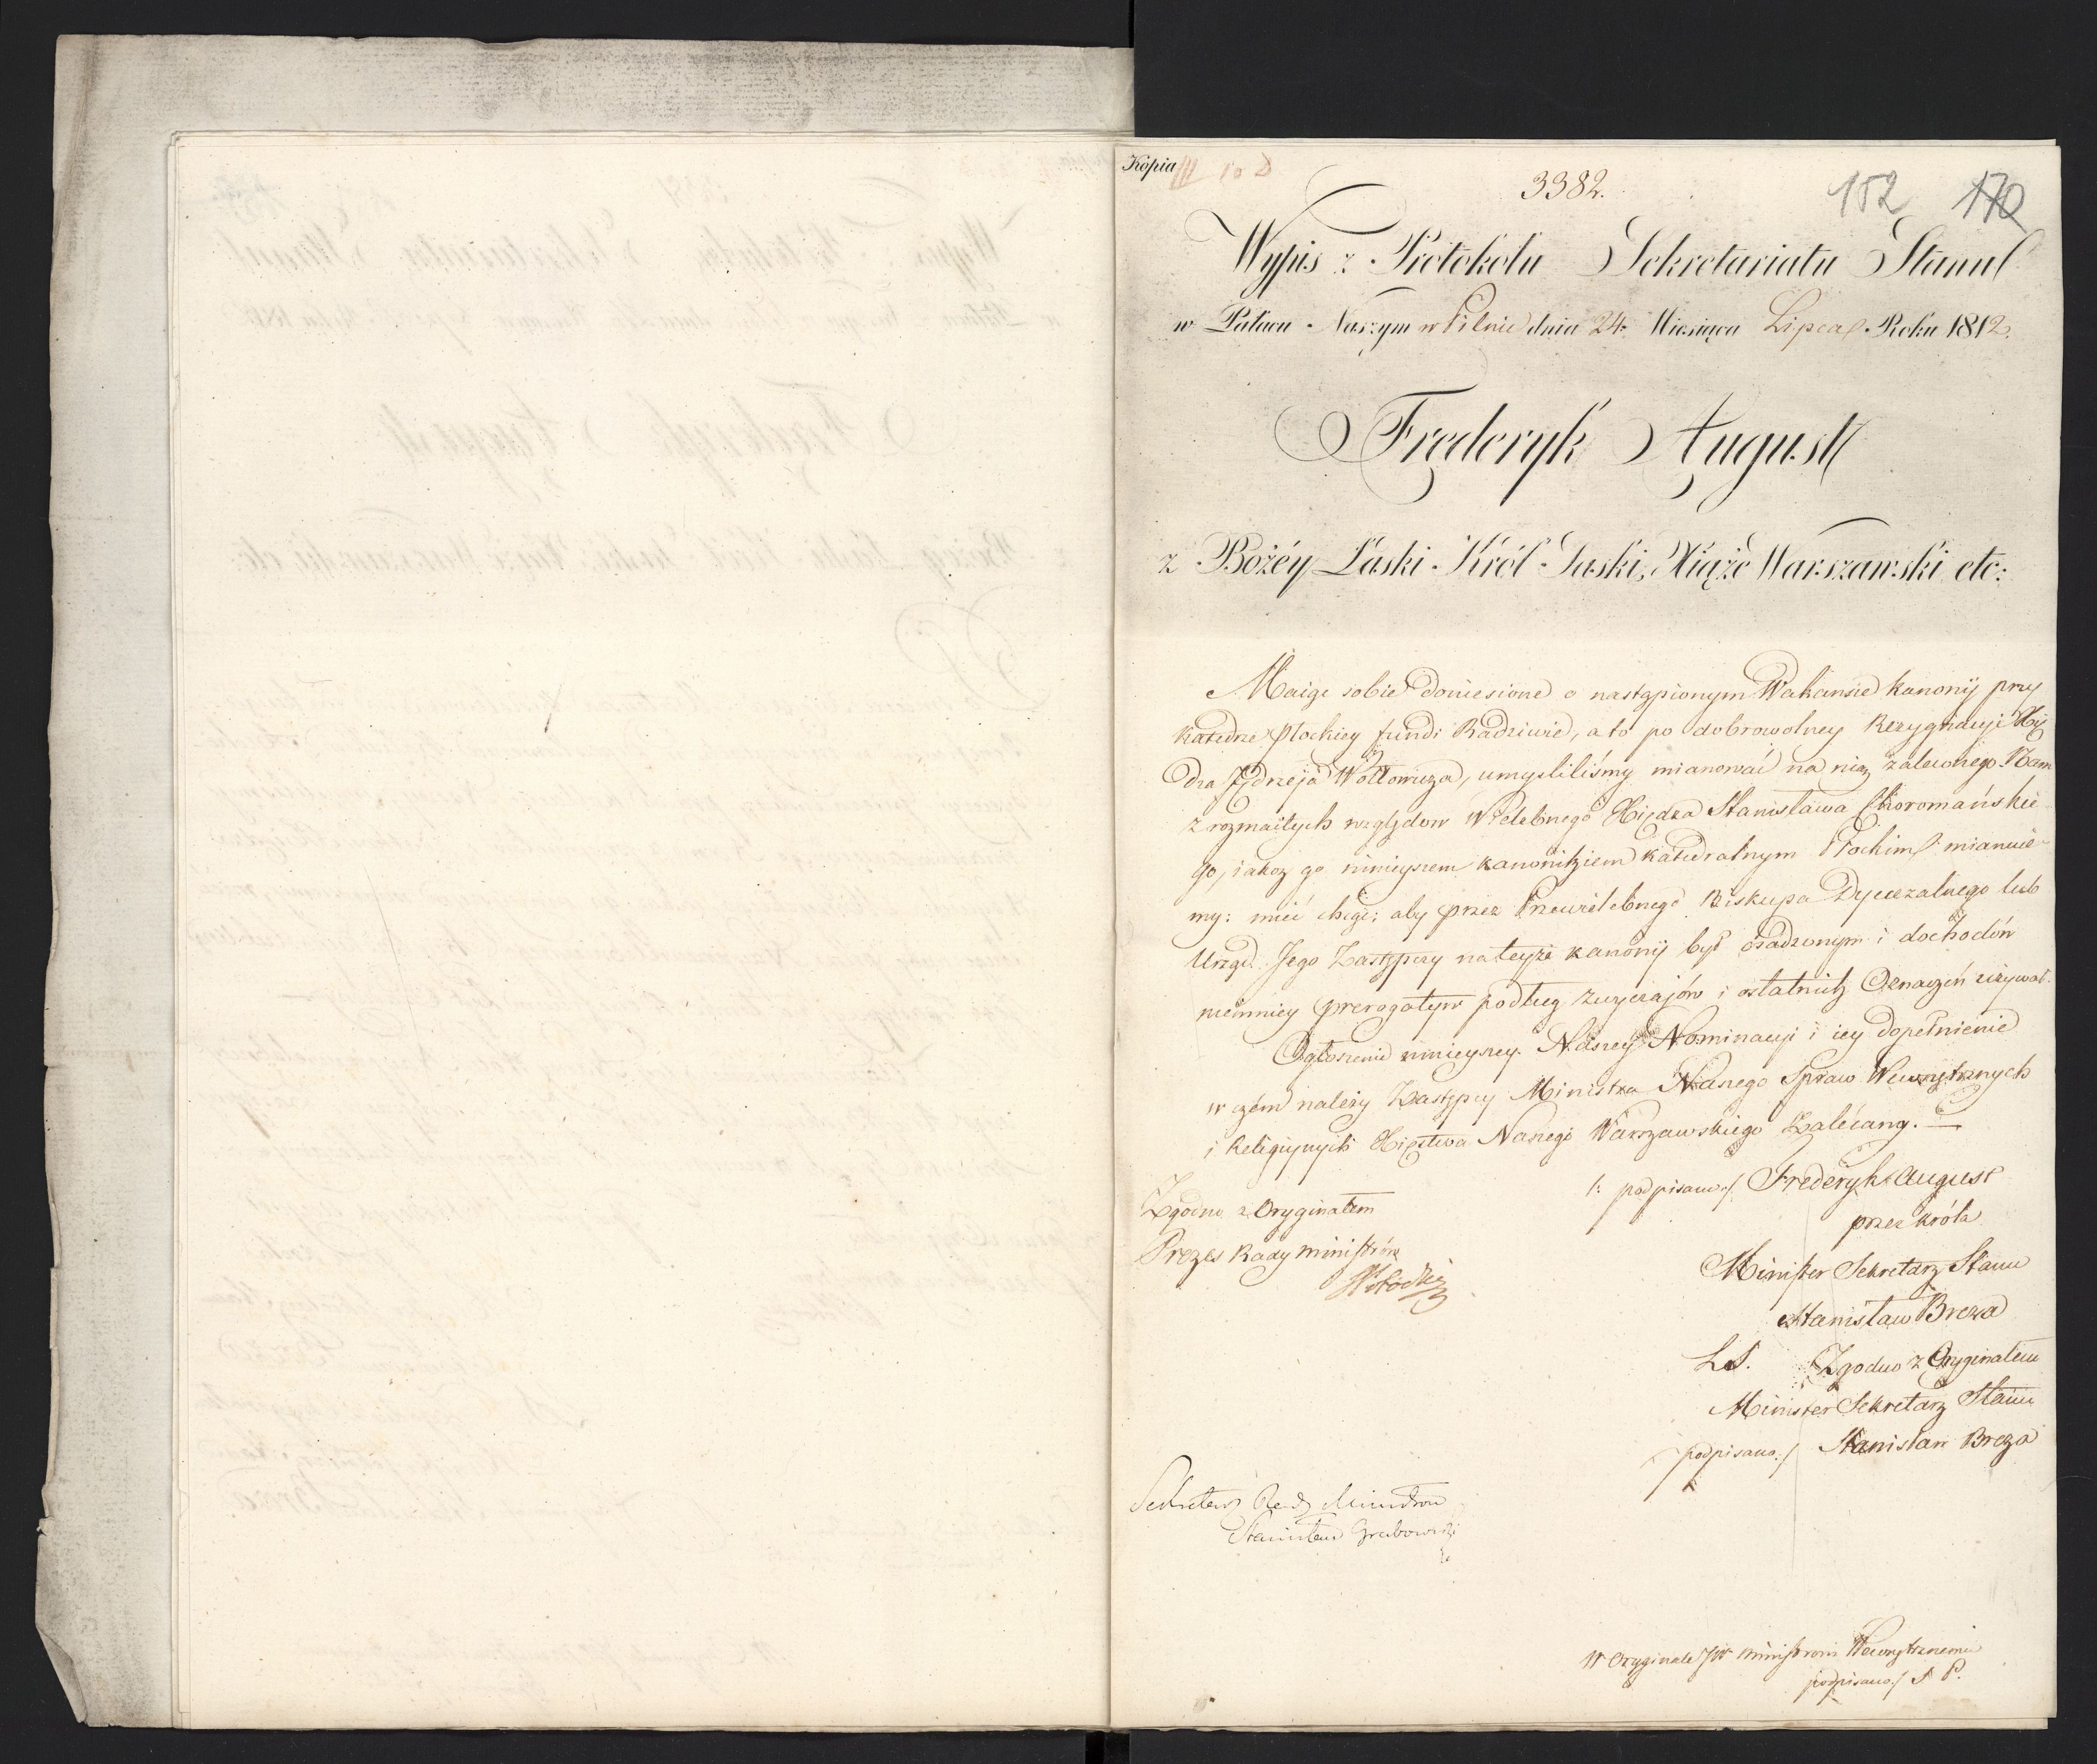 Kopia III 10 D
3382.
152 170
Wypis z Protokołu Sekretariatu Stanu
w Pałacu Naszym w Pilnie dnia 24. Miesiąca Lipca Roku 1812.
Fręderyk August
z Bożéy Łaski Król Saski, Xiążę Warszawski etc:
Maiąc sobie doniesione o nastąpionym Wakansie kanonij przy
katedrze Płockiey fundi Radziwie, a to po dobrowolney Rezygnacyi Xię
dza Jędrzeja Wołłowicza, umyśliliśmy mianować na nią zaleconego Nam
z rozmaitych względow Wielebnego Xiędza Stanisława Choromańskie
go, iakoż go ninieyszem kanonikiem katedralnym Płockim mianuie
my: mieć chcąc; aby przez Przewielebnego Biskupa Dyecezalnego lub
Urząd Jego Zastępczy na teyże kanonij był osadzonym i dochodów
niemniey prerogatyw podług zwyczajów i ostatnich Oznaczeń używał.
Ogłoszenie ninieyszey Naszey Nominacyi i iey dopełnienie
w czém należy Zastępcy Ministra Naszego Spraw Wewnętrznych
i Religiynych Xięstwa Naszego Warszawskiego Zalécamy.
/: podpisano :/ Frederyk August
Zgodno z Oryginałem
przez króla
Prezes Rady Ministrów
Minister Sekretarz Stanu
Stanisław Breza
L.S. Zgodno z Oryginałem
Minister Sekretarz Stanu
/podpisano./ Stanisław Breza
Sekretarz Rady Ministrow
Stanisław Grabowski
W Oryginale JW Ministrowi Wewnętrznemu
podpisano/ S P.